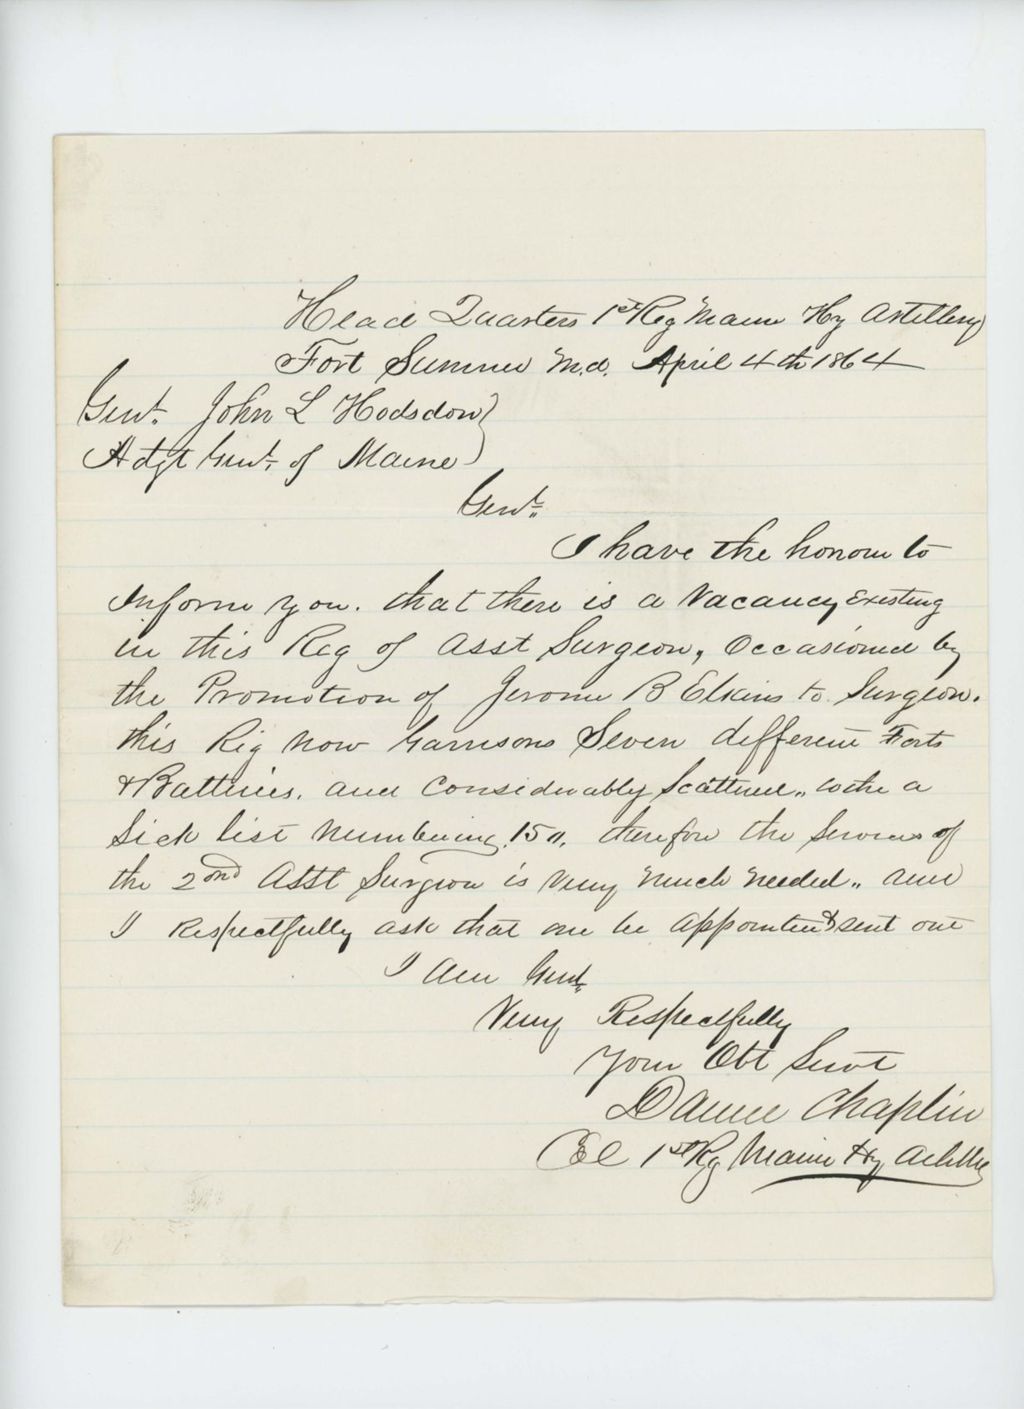 Head Quarters 1st Reg Maine Hy Artillery
Fort Sumner Md. April 4th 1864
Genl. John L Hodsdon
Adgt Genl. of Maine
Genl.
I have the honour to
Inform you. that there is a Vacancy Existing
in this Reg of Asst Surgeon, Occasioned by
the Promotion of Jerome B Elkins to Surgeon.
this Rig now Garrisons Seven different Forts
& Batteries. and Considerably Scattered,, with a
Sick list numbering 150. therefore the Services of
the 2nd Asst Surgeon is Very much needed,, and
I Respectfully ask that one be appointed & sent out
I Am Genl.
Very Respectfully
Your Obt Servt
Daniel Chaplin
Col 1st Rg Maine Hy Artillery